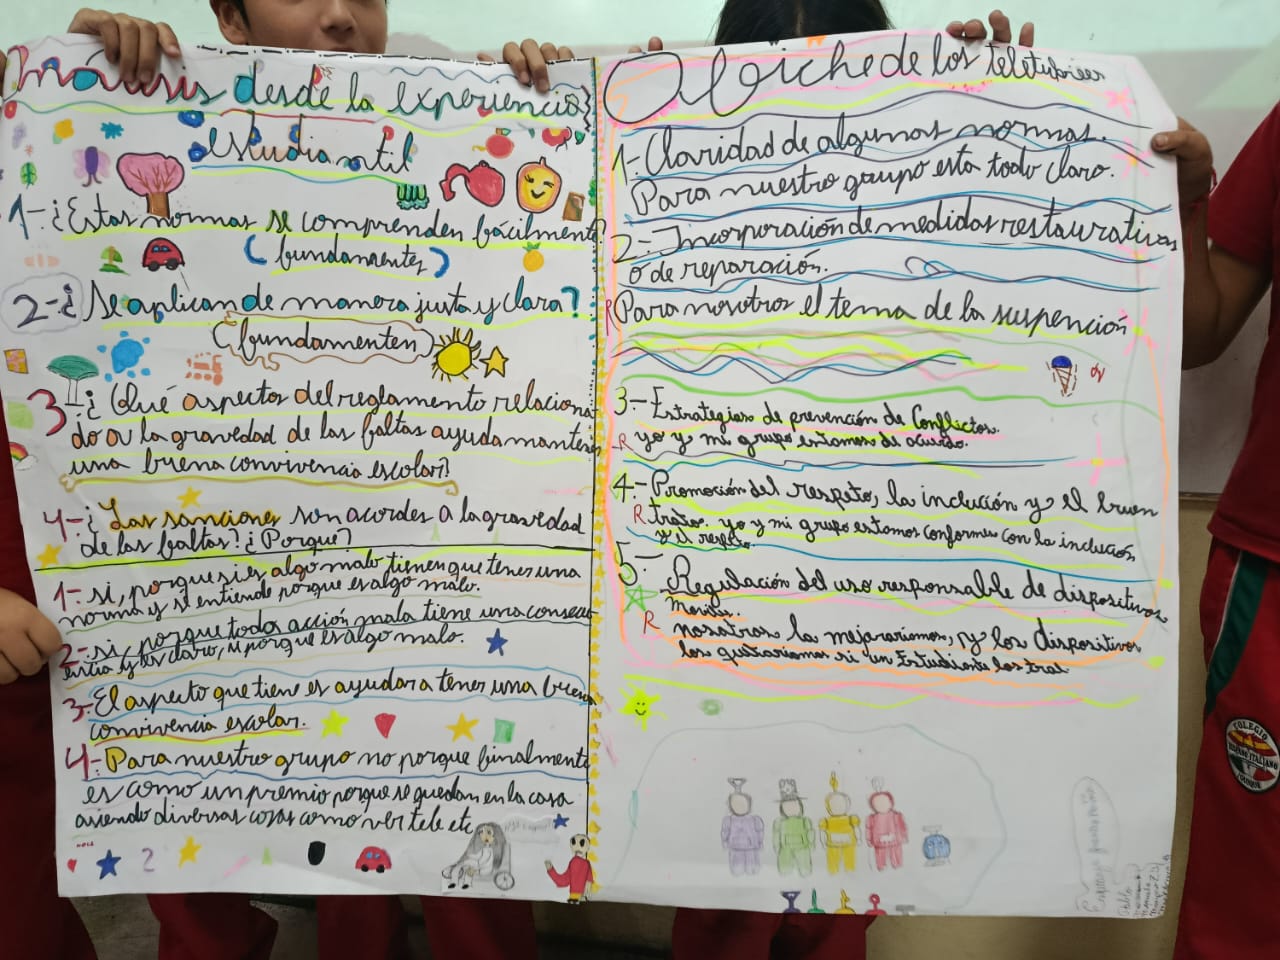 Análisis desde la experiencia
estudiantil
1-¿Estas normas se comprenden fácilmente?
(fundamentes)
2-¿Se aplican de manera justa y clara?
(fundamenten)
3 ¿Qué aspectos del reglamento relaciona
do a la gravedad de las faltas ayuda mantener
una buena convivencia escolar?
4-¿Las sanciones son acordes a la gravedad
de las faltas? ¿Porque?
1- si, porque si es algo malo tienen que tener una
norma y se entiende porque es algo malo.
2- si, porque toda acción mala tiene una consecu
encia y es claro, si porque es algo malo.
3- El aspecto que tiene es ayudar a tener una buena
convivencia escolar.
4- Para nuestro grupo no porque finalmente
es como un premio porque se quedan en la casa
asiendo diversas cosas como ver tele etc
Afiche de los teletubies
1- Claridad de algunas normas.
Para nuestro grupo esta todo claro.
2- Incorporación de medidas restaurativas
o de reparación.
R Para nosotros el tema de la suspención
3- Estrategias de prevención de conflictos.
-R yo y mi grupo entamos de acuerdo.
4- Promoción del respeto, la inclución y el buen
R trato. yo y mi grupo estamos conformes con la inclución
y el respeto
5-
5- Regulación del uso responsable de dispositivos
Moviles.
R nosotros la mejorariamos, y los dispositivos
los quitariamos si un Estudiante los trae
Pablo
COLEGIO
HISPANO ITALIANO
IQUIQUE